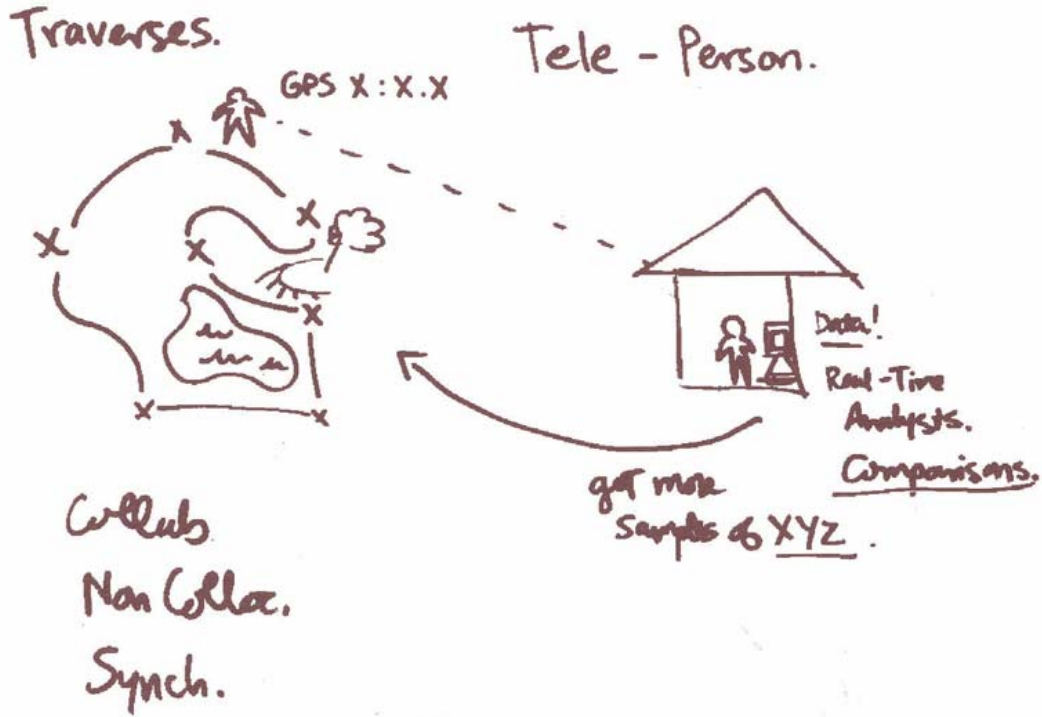 Traverses.
Tele - Person.
GPS X : X . X
Data!
Real-Time
Analysts.
Comparisons.
get more
samples of XYZ .
Collab
Non Colloc.
Synch.